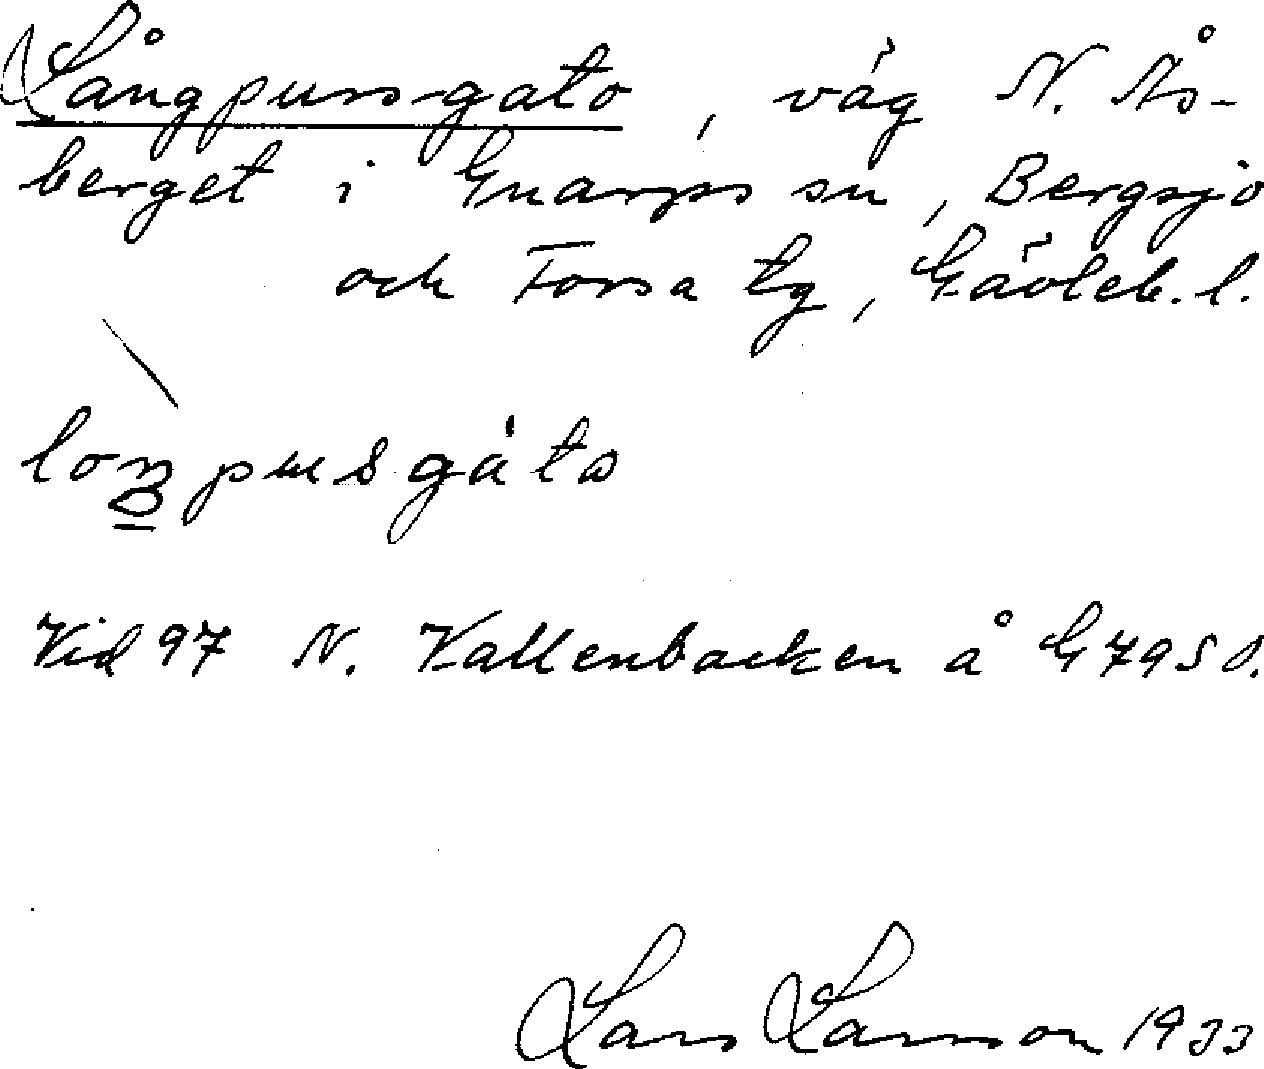 Långpurs-gato, väg N. Ås-
berget i Gnarps sn, Bergsjö
och Forsa tg, Gävleb. l.
loŋpusgàta
Vid 97 N. Vallenbacken å G 79 S O.
Lars Larsson 1933